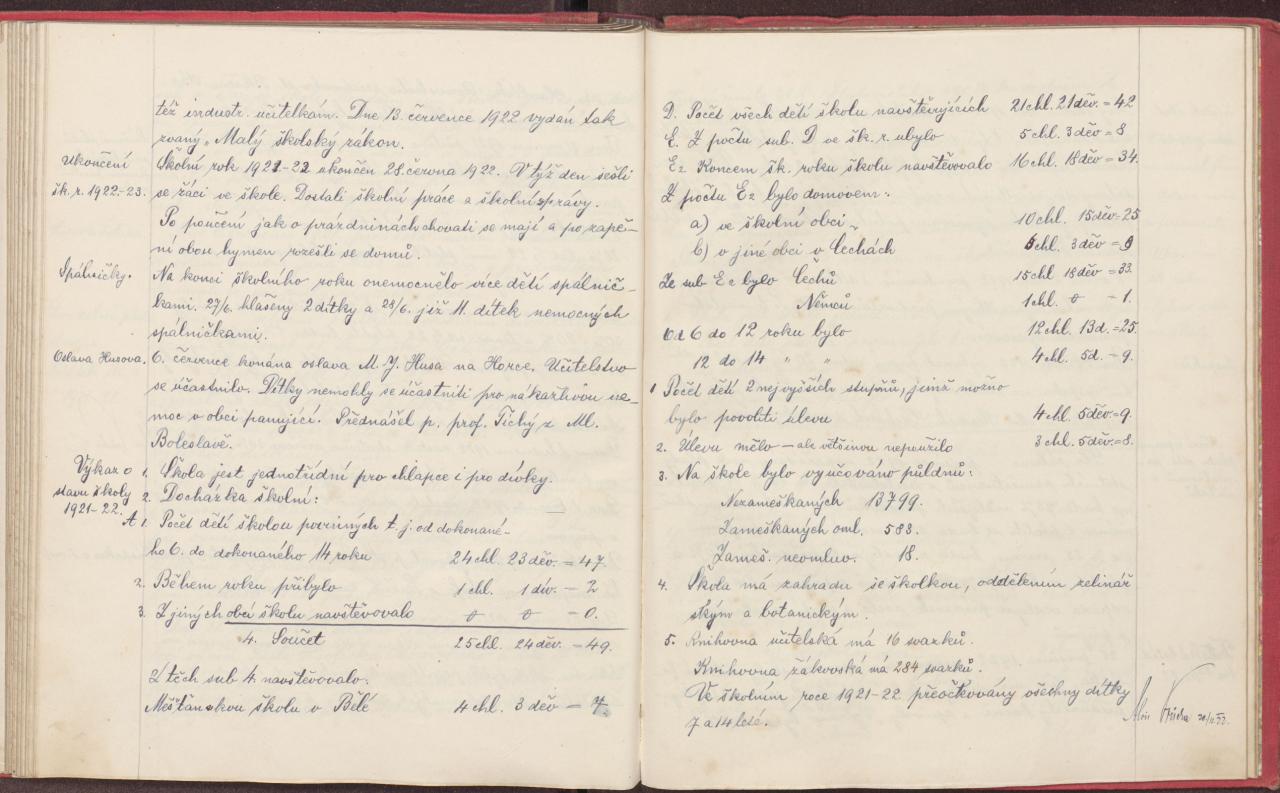 též industr. učitelkám. Dne 13. července 1922 vydán tak
zvaný „Malý školský zákon.
Ukončení
šk. r. 1922-23.
Školní rok 1921-22 ukončen 28. června 1922. V týž den sešli
se žáci ve škole. Dostali školní práce a školní zprávy.
Po poučení jak o prázdninách chovati se mají a po zapě-
ní obou hymen rozešli se domů.
Spálničky.
Na konci školního roku onemocnělo více dětí spálnič-
kami. 27/6. hlášeny 2 dítky a 28/6. již 11. dítek nemocných
spálničkami.
Oslava Husova.
6. července konána oslava M. J. Husa na Horce. Učitelstvo
se účastnilo. Dítky nemohly se účastniti pro nakažlivou ne-
moc v obci panující. Přednášel p. prof. Tichý z Ml.
Boleslavě.
Výkaz o
stavu školy
1921-22.
1. Škola jest jednotřídní pro chlapce i pro dívky.
2. Docházka školní:
A 1. Počet dětí školou povinných t. j. od dokonané-
ho 6. do dokonaného 14 roku 24 chl. 23 děv. = 47.
2. Během roku přibylo 1 chl. 1 dív. - 2
3. Z jiných obcí školu navštěvovalo 0 0 - 0.
4. Součet 25 chl. 24 děv. - 49.
Z těch sub 4. navštěvovalo:
Měšťanskou školu v Bělé 4 chl. 3 děv - 7.
D. Počet všech dětí školu navštěvujících 21 chl. 21 děv. = 42
E. Z počtu sub. D ve šk. r. ubylo 5 chl. 3 děv = 8
E2 Koncem šk. roku školu navštěvovalo 16 chl. 18 děv = 34.
Z počtu E2 bylo domovem:
a) ve školní obci 10 chl. 15 děv - 25
b) v jiné obci v Čechách 5 chl. 3 děv = 9
Ze sub E2 bylo Čechů 15 chl 18 děv = 33.
Němců 1 chl. 0 - 1.
Od 6 do 12 roku bylo 12 chl. 13 d. = 25.
12 do 14 " " 4 chl. 5 d. - 9.
1 Počet dětí 2 nejvyšších stupňů, jimž možno
bylo povoliti úlevu 4 chl. 5 děv. = 9.
2. Úlevu mělo - ale většinou nepoužilo 3 chl. 5 děv. = 8.
3. Na škole bylo vyučováno půldnů:
Nezameškaných 13799.
Zameškaných oml. 583.
Zameš. neomluv. 18.
4. Škola má zahradu se školkou, oddělením zelinář
ským a botanickým.
5. Knihovna učitelská má 16 svazků.
Knihovna žákovská má 284 svazků.
Ve školním roce 1921-22. přeočkovány všechny dítky
7 a 14 leté.